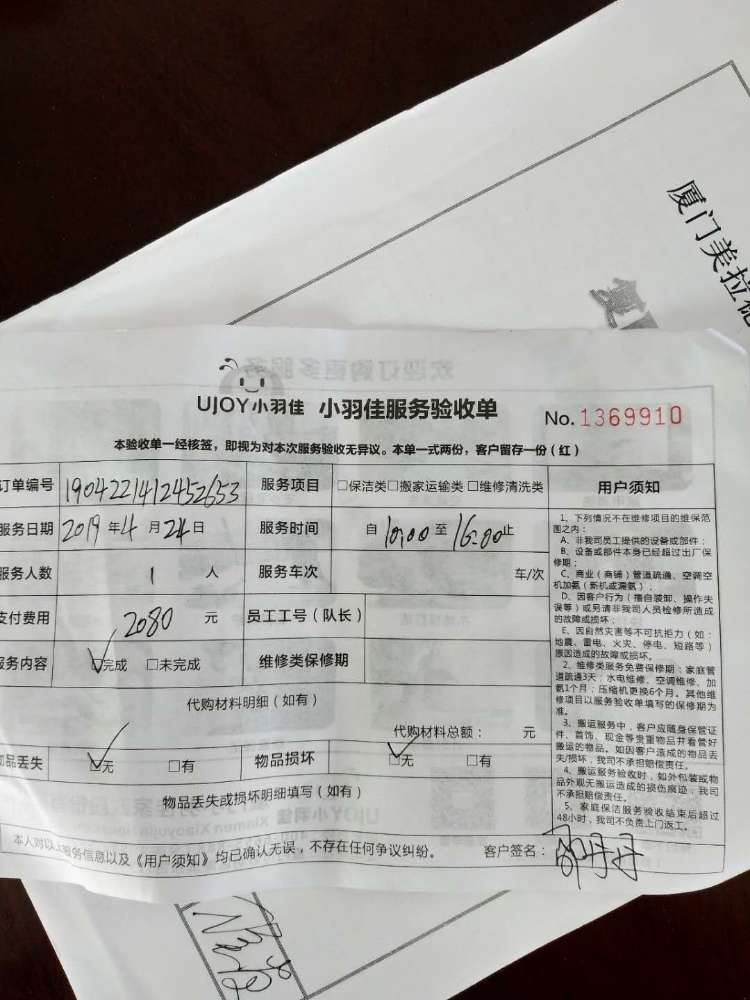 厦门美拉
欢迎订购更多服务
UJOY小羽佳 小羽佳服务验收单 No. 1369910
本验收单一经核签，即视为对本次服务验收无异议。本单一式两份，客户留存一份（红）
订单编号 1904221412452653 服务项目 □保洁类□搬家运输类□维修清洗类 用户须知
服务日期 2019年4月24日 服务时间 自10:00至16:00止
服务人数 1 人 服务车次 车/次
支付费用 2080 元 员工工号（队长）
服务内容 □完成 □未完成 维修类保修期
代购材料明细（如有）
代购材料总额： 元
物品丢失 □无 □有 物品损坏 □无 □有
物品丢失或损坏明细填写（如有）
本人对以上服务信息以及《用户须知》均已确认无误，不存在任何争议纠纷。 客户签名：
1、下列情况不在维修项目的维保范
围之内：
A、非我司员工提供的设备或部件；
B、设备或部件本身已经超过出厂保
修期；
C、商业（商铺）管道疏通、空调空
机加氨（新机或漏氨）；
D、因客户行为（擅自装卸、操作失
误等）或另请非我司人员检修所造成
的故障或损坏；
E、因自然灾害等不可抗拒力（如：
地震、雷电、火灾、停电、短路等）
原因造成的故障或损坏。
2、维修类服务免费保修期：家庭管
道疏通3天；水电维修、空调维修、加
氨1个月；压缩机更换6个月。其他维
修项目以服务验收单填写的保修期为
准。
3、搬运服务中，客户应随身保管证
件、首饰、现金等贵重物品并看管好
搬运的物品。如因客户造成的物品丢
失/损坏，我司不承担赔偿责任。
4、搬运服务验收时，如外包装或物
品外观无搬运造成的损伤痕迹，我司
不承担赔偿责任。
5、家庭保洁服务验收结束后超过
48小时，我司不负责上门返工。